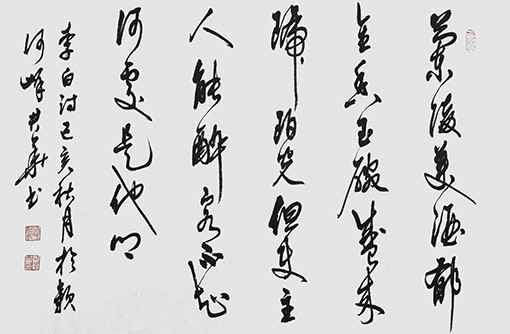 蘭陵美酒郁
金香玉碗盛来
琥珀光但使主
人能醉客不知
何處是他乡
李白诗己亥秋月於颖
河華书